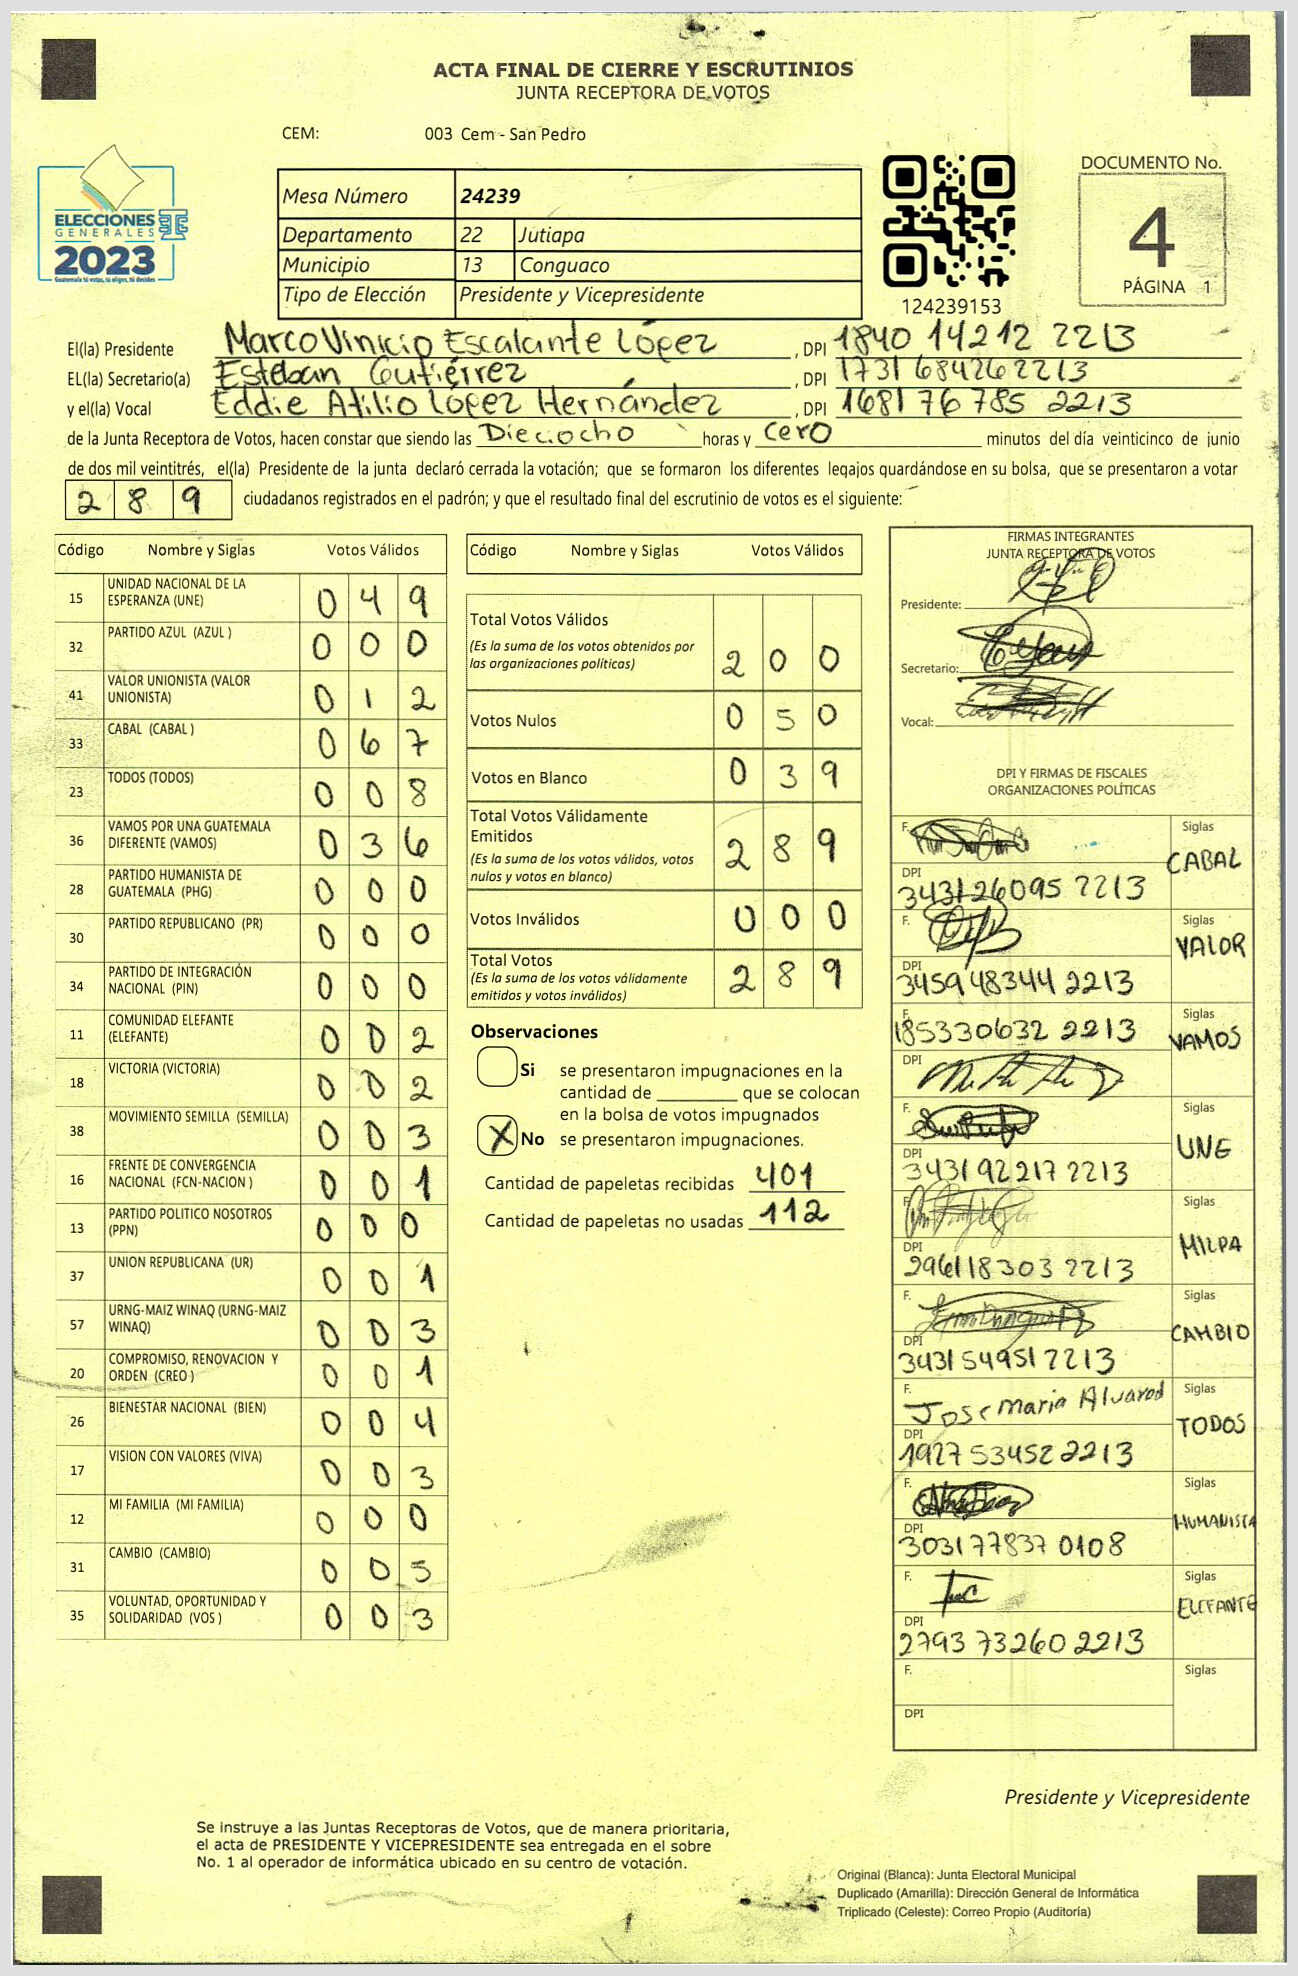 ACTA FINAL DE CIERRE Y ESCRUTINIOS
JUNTA RECEPTORA DE VOTOS
CEM: 003 Cem - San Pedro
ELECCIONES
GENERALES
2023
Guatemala tú votas, tú eliges, tú decides
Mesa Número 24239
Departamento 22 Jutiapa
Municipio 13 Conguaco
Tipo de Elección Presidente y Vicepresidente
124239153
DOCUMENTO No.
4
PÁGINA 1
El(la) Presidente Marco Vinicio Escalante López , DPI 1840 14212 2213
EL(la) Secretario(a) Esteban Gutiérrez , DPI 1731 68426 2213
y el(la) Vocal Eddie Atilio López Hernández , DPI 1681 76 785 2213
de la Junta Receptora de Votos, hacen constar que siendo las Dieciocho horas y cero minutos del día veinticinco de junio
de dos mil veintitrés, el(la) Presidente de la junta declaró cerrada la votación; que se formaron los diferentes legajos quardándose en su bolsa, que se presentaron a votar
2 8 9 ciudadanos registrados en el padrón; y que el resultado final del escrutinio de votos es el siguiente:
Código Nombre y Siglas Votos Válidos
15 UNIDAD NACIONAL DE LA ESPERANZA (UNE) 0 4 9
32 PARTIDO AZUL (AZUL ) 0 0 0
41 VALOR UNIONISTA (VALOR UNIONISTA) 0 1 2
33 CABAL (CABAL ) 0 6 7
23 TODOS (TODOS) 0 0 8
36 VAMOS POR UNA GUATEMALA DIFERENTE (VAMOS) 0 3 6
28 PARTIDO HUMANISTA DE GUATEMALA (PHG) 0 0 0
30 PARTIDO REPUBLICANO (PR) 0 0 0
34 PARTIDO DE INTEGRACIÓN NACIONAL (PIN) 0 0 0
11 COMUNIDAD ELEFANTE (ELEFANTE) 0 0 2
18 VICTORIA (VICTORIA) 0 0 2
38 MOVIMIENTO SEMILLA (SEMILLA) 0 0 3
16 FRENTE DE CONVERGENCIA NACIONAL (FCN-NACION ) 0 0 1
13 PARTIDO POLITICO NOSOTROS (PPN) 0 0 0
37 UNION REPUBLICANA (UR) 0 0 1
57 URNG-MAIZ WINAQ (URNG-MAIZ WINAQ) 0 0 3
20 COMPROMISO, RENOVACION Y ORDEN (CREO ) 0 0 1
26 BIENESTAR NACIONAL (BIEN) 0 0 4
17 VISION CON VALORES (VIVA) 0 0 3
12 MI FAMILIA (MI FAMILIA) 0 0 0
31 CAMBIO (CAMBIO) 0 0 5
35 VOLUNTAD, OPORTUNIDAD Y SOLIDARIDAD (VOS ) 0 0 3
Código Nombre y Siglas Votos Válidos
Total Votos Válidos
(Es la suma de los votos obtenidos por
las organizaciones políticas) 2 0 0
Votos Nulos 0 5 0
Votos en Blanco 0 3 9
Total Votos Válidamente
Emitidos
(Es la suma de los votos válidos, votos
nulos y votos en blanco) 2 8 9
Votos Inválidos 0 0 0
Total Votos
(Es la suma de los votos válidamente
emitidos y votos inválidos) 2 8 9
Observaciones
Si se presentaron impugnaciones en la
cantidad de ________ que se colocan
en la bolsa de votos impugnados
X No se presentaron impugnaciones.
Cantidad de papeletas recibidas 401
Cantidad de papeletas no usadas 112
FIRMAS INTEGRANTES
JUNTA RECEPTORA DE VOTOS
Presidente:
Secretario:
Vocal:
DPI Y FIRMAS DE FISCALES
ORGANIZACIONES POLÍTICAS
F. Siglas CABAL
DPI 3431 26095 2213
F. Siglas VALOR
DPI 3459 48344 2213
F. 185330632 2213 Siglas VAMOS
DPI
F. Siglas UNE
DPI 3431 92217 2213
F. Siglas MILPA
DPI 2961 18303 2213
F. Siglas CAMBIO
DPI 3431 54951 2213
F. Jose Maria Alvarad Siglas TODOS
DPI 1927 53452 2213
F. Siglas HUMANISTA
DPI 3031 77837 0108
F. Siglas ELEFANTE
DPI 2793 73260 2213
F. Siglas
DPI
Presidente y Vicepresidente
Se instruye a las Juntas Receptoras de Votos, que de manera prioritaria,
el acta de PRESIDENTE Y VICEPRESIDENTE sea entregada en el sobre
No. 1 al operador de informática ubicado en su centro de votación.
Original (Blanca): Junta Electoral Municipal
Duplicado (Amarilla): Dirección General de Informática
Triplicado (Celeste): Correo Propio (Auditoría)